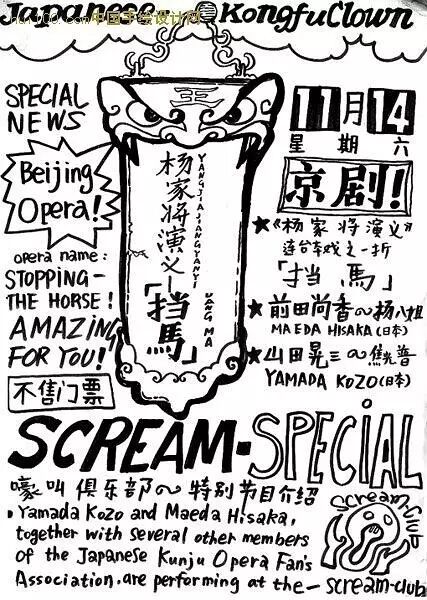 Japanese
KongfuClown
中国手绘设计网
SPECIAL
NEWS
Beijing
Opera!
opera name:
STOPPING-
THE HORSE!
AMAZING
FOR YOU!
不售门票
王
杨家将演义—「挡馬」
YANGJIAJIANGYANYI
DANG MA
11月14
星期六
京剧!
★《杨家将演义》
连台本戏之一折
「挡馬」
★前田尚香~杨八姐
MAEDA HISAKA(日本)
★山田晃三~焦普
YAMADA KOZO(日本)
SCREAM-SPECiAL
嚎叫俱乐部~特别节目介绍
• Yamada Kozo and Maeda Hisaka,
together with several other members
of the Japanese Kunju Opera Fan's
Association, are performing at the— scream-club
Scream Club